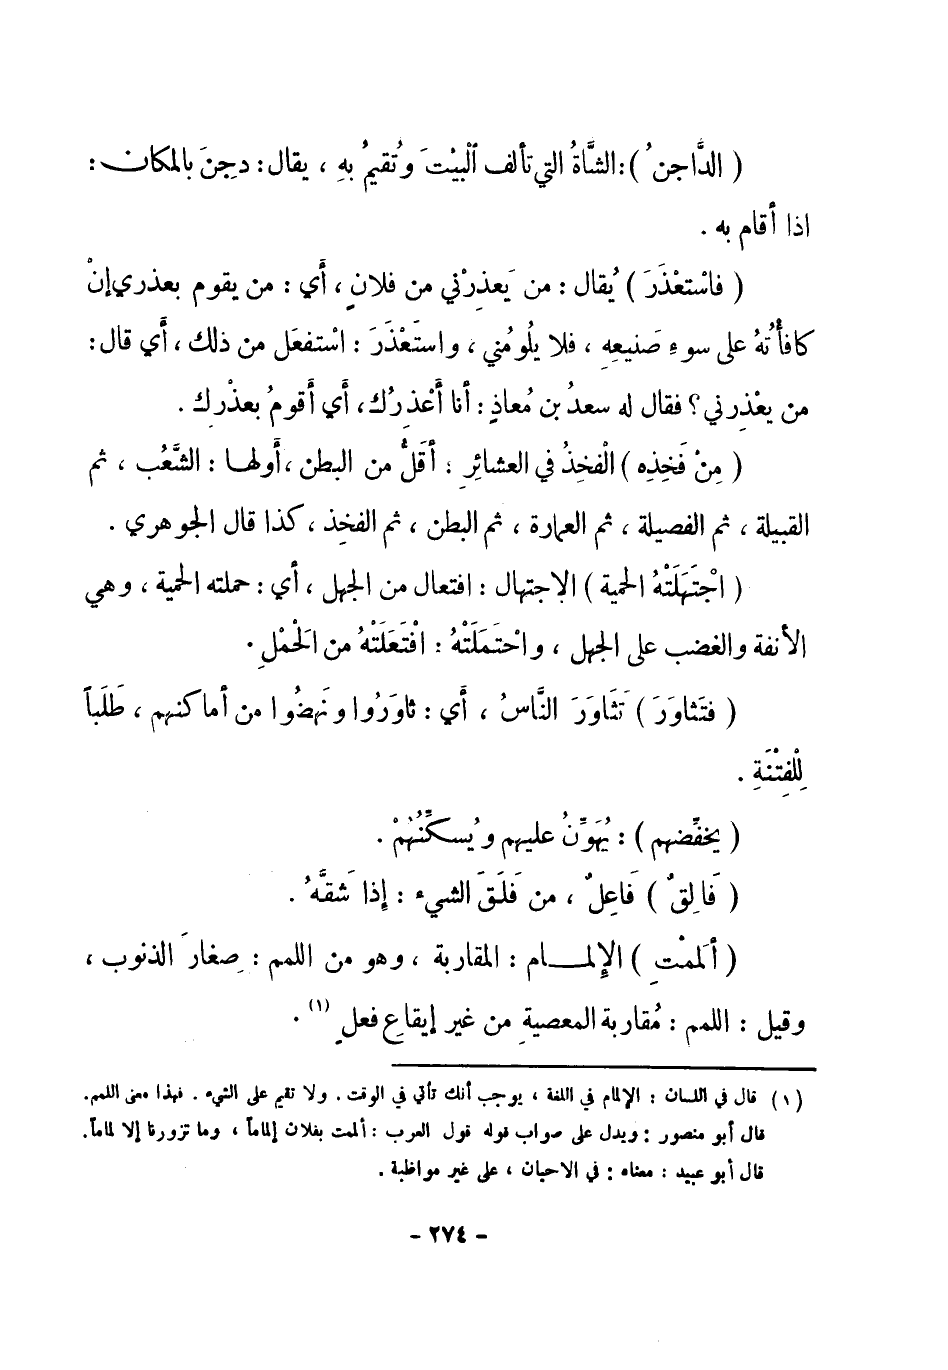 ( الدَّاجنُ ) : الشَّاةُ التي تألف ٱلْبيْتَ وتُقيمُ بهِ ، يقال : دجِنَ بالمكان :
اذا أقام به .
( فاسْتعْذَرَ ) يُقال : من يَعذِرْني من فلانٍ ، أَي : من يقوم بعذري إنْ
كافأْتهُ على سوءِ صَنيعِهِ ، فلا يلُومُني ، واستَعْذَرَ : اسْتفعَل من ذلك ، أَي قال :
من يعْذِرني ؟ فقال له سعدُ بن مُعاذٍ : أنا أَعْذِرُك ، أَي أَقومُ بعذْرِك .
( مِنْ فَخِذِه ) الْفخِذُ في العشائِرِ : أَقَلُّ من البطن ، أَولها : الشَّعْب ، ثم
القبيلة ، ثم الفصيلة ، ثم العمارة ، ثم البطن ، ثم الفخِذ ، كذا قال الجوهري .
( اجْتَهَلَتْهُ الحمية ) الاِجتهال : افتعال من الجهل ، أَي : حملته الحمية ، وهي
الأنفة والغضب على الجهل ، واحْتمَلَتْهُ : افْتَعَلَتْهُ من الْحَمْلِ .
( فتَثاوَرَ ) تَثَاوَرَ النَّاسُ ، أَي : ثاوَرُوا ونَهضُوا من أماكنهم ، طَلَباً
لِلْفِتْنَةِ .
( يخفِّضهم ) : يُهَوِّنُ عليهم ويُسكِّنُهُمْ .
( فَالِقٌ ) فَاعِلٌ ، من فَلَقَ الشيء : إِذا شقَّهُ .
( أَلممْتِ ) الإلمـــام : المقاربة ، وهو من اللمم : صِغارَ الذنوب ،
وقيل : اللمم : مُقاربة المعصيةِ من غير إيقاعِ فعلٍ (١) .
(١) قال في اللسان : الإلمام في اللغة ، يوجب أنك تأتي في الوقت . ولا تقيم على الشيء . فهذا معنى اللمم.
قال أبو منصور : ويدل على صواب قوله قول العرب : ألممت بفلان إلماماً ، وما تزورنا إلا لماماً.
قال أبو عبيد : معناه : في الاحيان ، على غير مواظبة .
- ٢٧٤ -